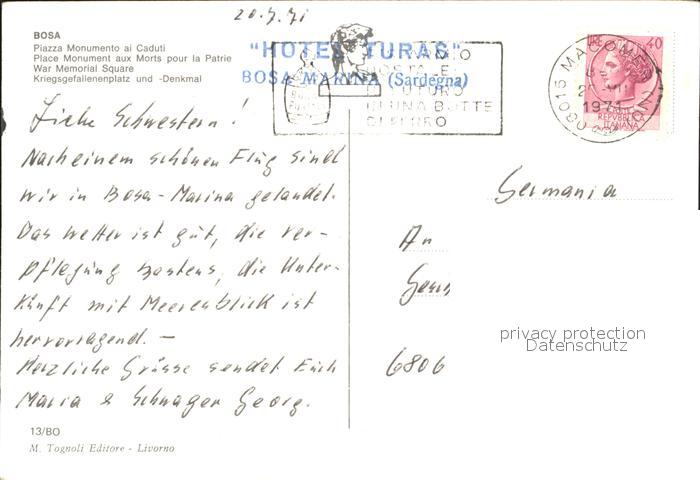 20.7.71
BOSA
Piazza Monumento ai Caduti
Place Monument aux Morts pour la Patrie
War Memorial Square
Kriegsgefallenenplatz und -Denkmal
"HOTEL TURAS"
BOSA MARINA (Sardegna)
UNA BOTTE
DI FERRO
08015 MACOMER
1971
LIRE 40
REPVBBLICA
ITALIANA
Liebe Schwestern!
Nach einem schönen Flug sind
wir in Bosa-Marina gelandet.
Das Wetter ist gut, die Ver-
pflegung bestens, die Unter-
kunft mit Meeresblick ist
hervorragend. –
Herzliche Grüsse sendet Euch
Maria & Schwager Georg.
Germania
An
6806
privacy protection
Datenschutz
13/BO
M. Tognoli Editore - Livorno